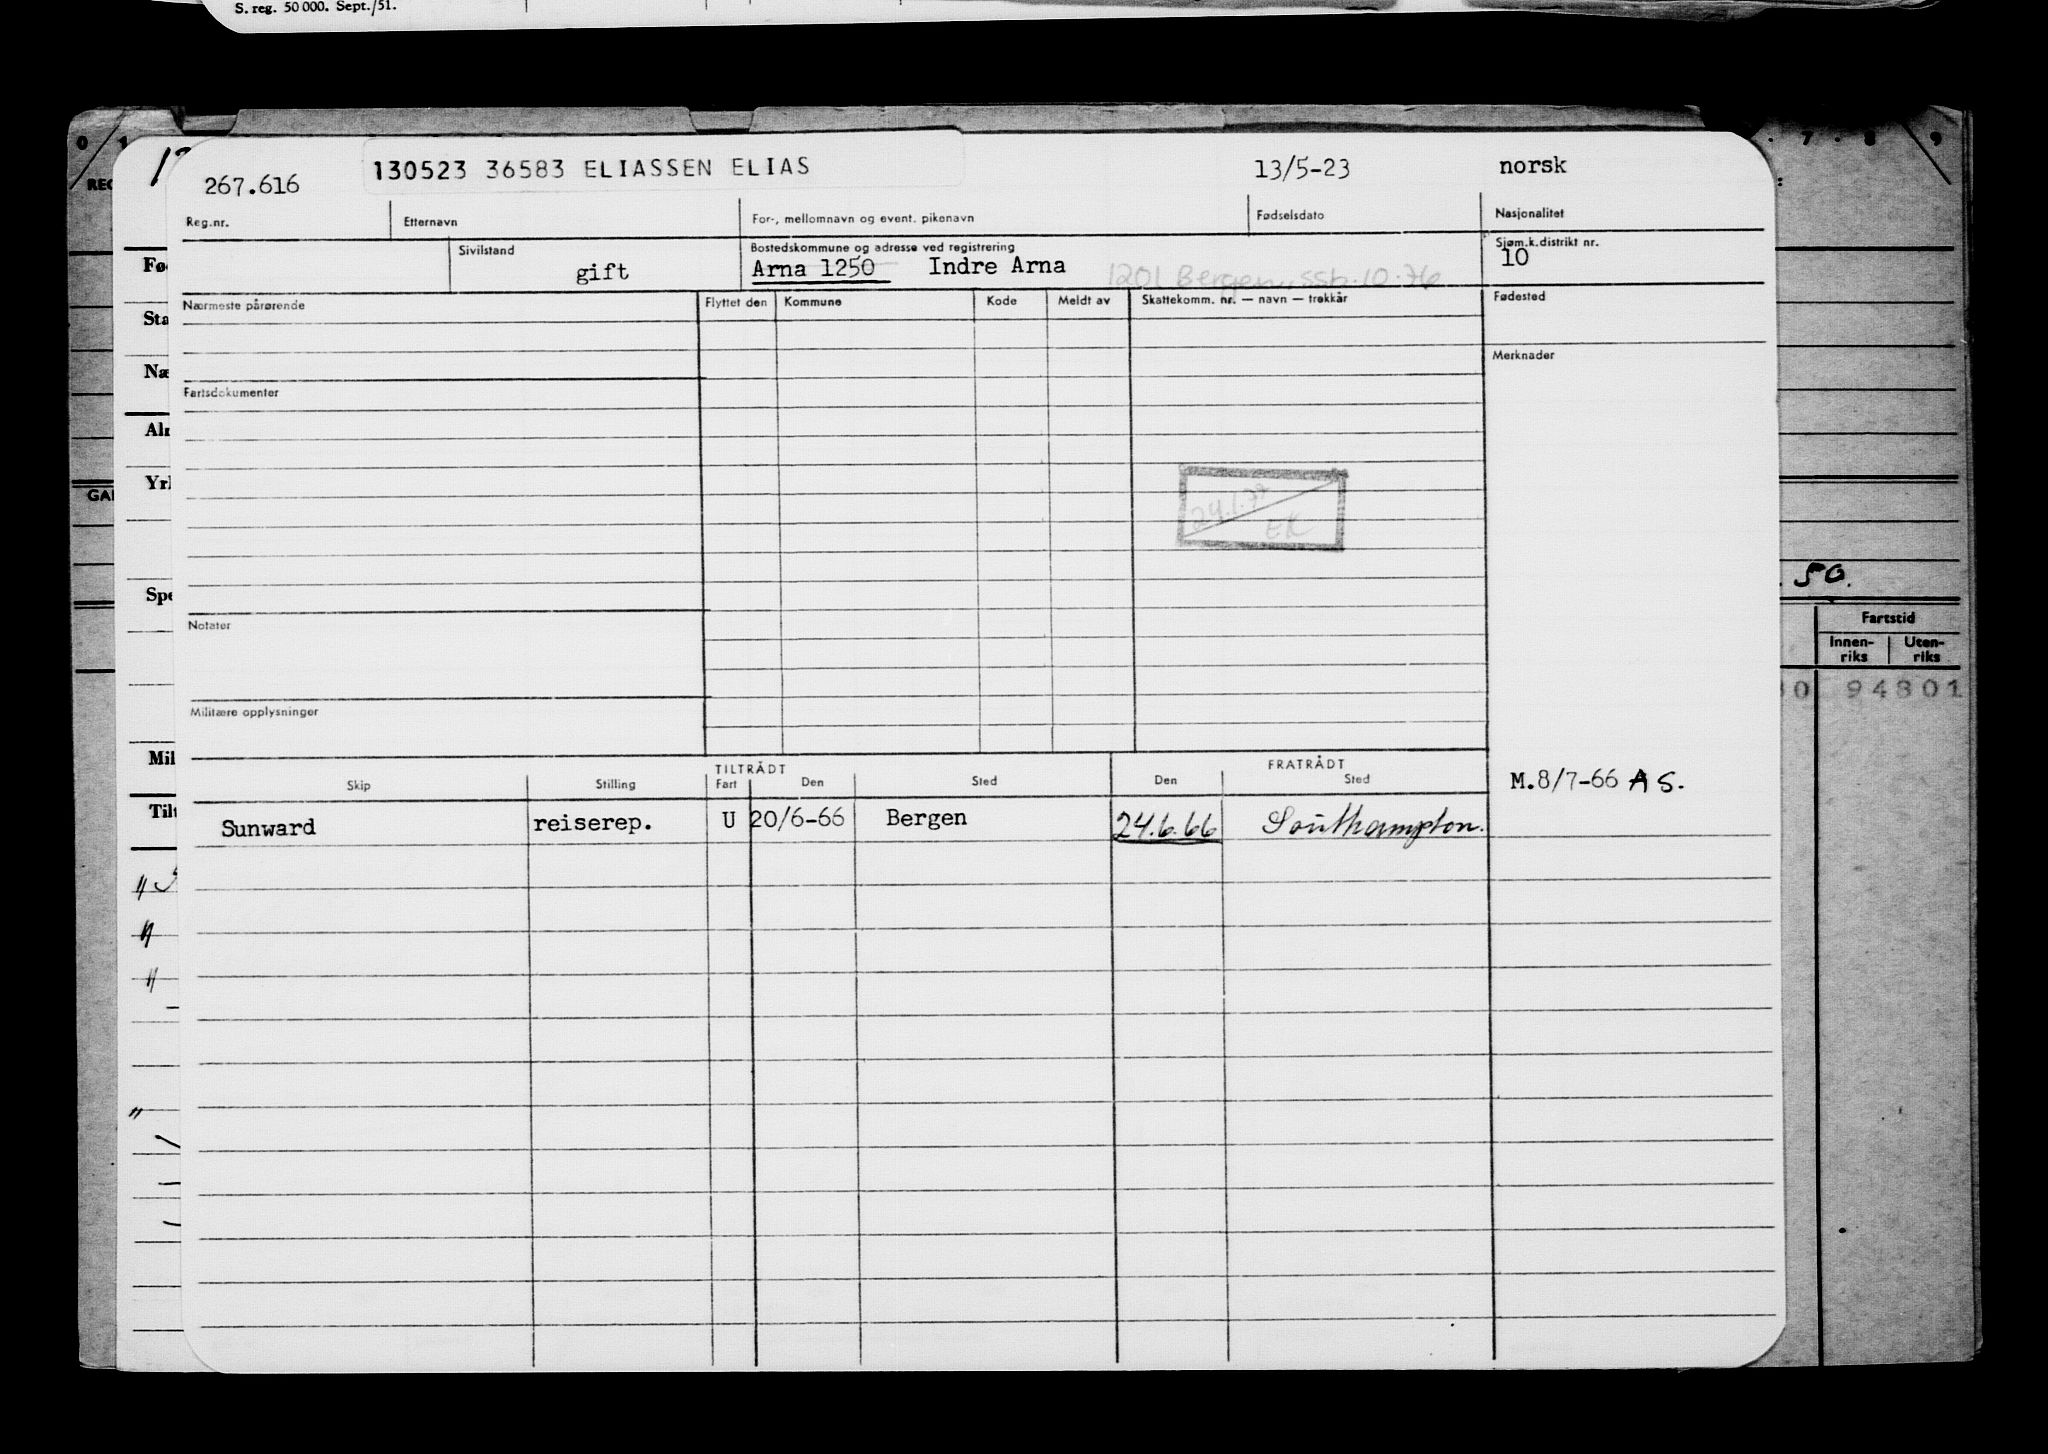 S. reg. 50 000. Sept./51.
267.616
130523 36583 ELIASSEN ELIAS
13/5-23
norsk
Reg.nr.
Etternavn
For-, mellomnavn og event. pikenavn
Fødselsdato
Nasjonalitet
Sivilstand
gift
Bostedskommune og adresse ved registrering
Arna 1250 Indre Arna
1201 Bergen, ssb. 10.76
Sjøm.k.distrikt nr.
10
Nærmeste pårørende
Flyttet den
Kommune
Kode
Meldt av
Skattekomm. nr. — navn — trekkår
Fødested
Merknader
Fartsdokumenter
EK
Notater
Militære opplysninger
50.
Fartstid
Innen-
riks
Uten-
riks
94801
TILTRÅDT
FRATRÅDT
Skip
Stilling
Fart
Den
Sted
Den
Sted
M.8/7-66 AS.
Sunward
reiserep.
U
20/6-66
Bergen
24.6.66
Southampton.